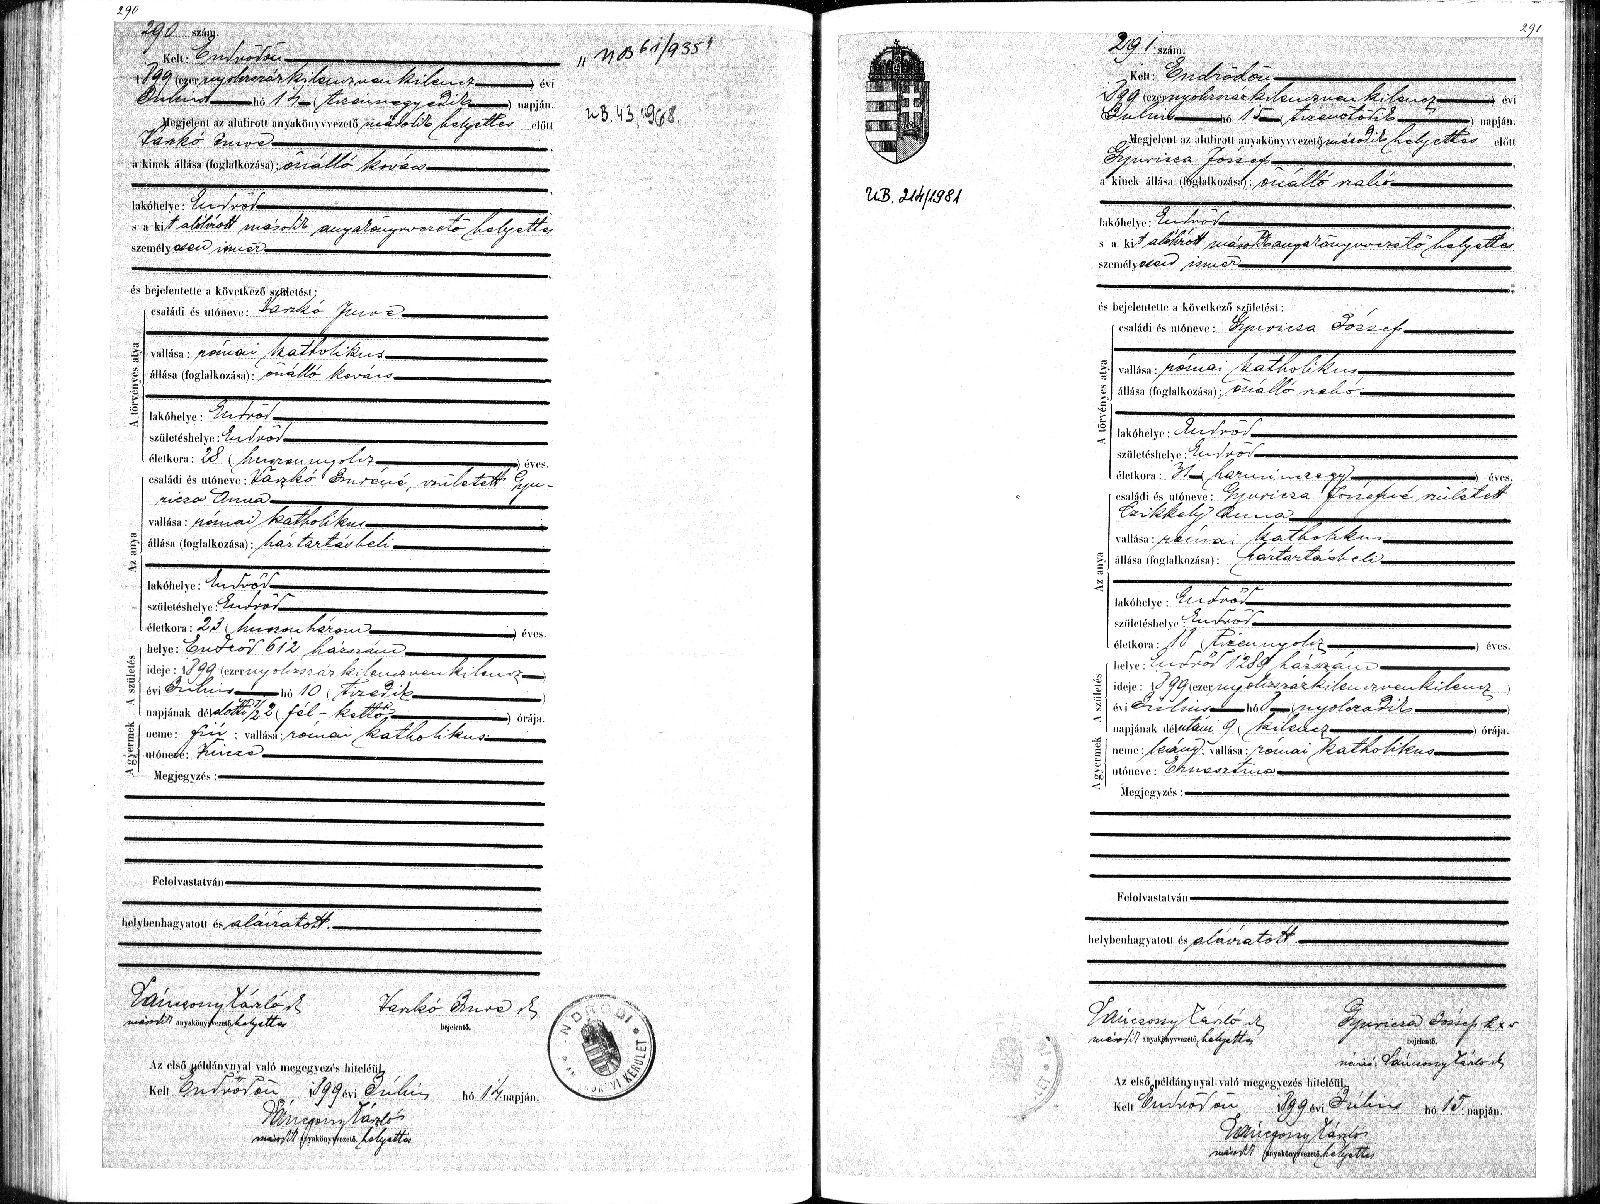 290
290 szám.
Kelt: Endrődön
1899 (ezernyolczszázkilenczvenkilencz) évi
Július hó 14 (tizennegyedik) napján.
Megjelent az alulirott anyakönyvvezető második helyettes előtt
Varkó Imre
a kinek állása (foglalkozása): önálló kovács
lakóhelye: Endrőd
s a kit alólírott második anyakönyvvezető helyettes
személyesen ismer
és bejelentette a következő születést:
A törvényes atya
családi és utóneve: Varkó Imre
vallása: római katholikus
állása (foglalkozása): önálló kovács
lakóhelye: Endrőd
születéshelye: Endrőd
életkora: 28 (huszonnyolcz) éves.
Az anya
családi és utóneve: Varkó Imréné, született Gyu-
ricza Anna
vallása: római katholikus
állása (foglalkozása): háztartásbeli
lakóhelye: Endrőd
születéshelye: Endrőd
életkora: 23 (huszonhárom) éves.
A születés
helye: Endrőd 612 házszám
ideje: 1899 (ezernyolczszázkilenczvenkilencz)
évi Július hó 10 (tizedik)
napjának délelőtti 1/2 2 (fél-kettő) órája.
A gyermek
neme: fiú; vallása: római katholikus
utóneve: Vincze
Megjegyzés:
Felolvastatván
helybenhagyatott és aláíratott.
Lánczony László sk Varkó Imre sk
második anyakönyvvezető helyettes bejelentő.
Az első példánynyal való megegyezés hiteléül.
Kelt Endrődön, 1899 évi Július hó 14 napján.
Lánczony László
második anyakönyvvezető helyettes
61/935
UB. 43/1968
KERÜLET
291
291 szám.
Kelt: Endrődön
1899 (ezernyolczszázkilenczvenkilencz) évi
Július hó 15 (tizenötödik) napján.
Megjelent az alulirott anyakönyvvezető második helyettes előtt
Gyuricza József
a kinek állása (foglalkozása): önálló szabó
lakóhelye: Endrőd
s a kit alólírott második anyakönyvvezető helyettes
személyesen ismer
és bejelentette a következő születést:
A törvényes atya
családi és utóneve: Gyuricza József
vallása: római katholikus
állása (foglalkozása): önálló szabó
lakóhelye: Endrőd
születéshelye: Endrőd
életkora: 31 (harminczegy) éves.
Az anya
családi és utóneve: Gyuricza Józsefné, született
Czikkely Anna
vallása: római katholikus
állása (foglalkozása): háztartásbeli
lakóhelye: Endrőd
születéshelye: Endrőd
életkora: 18 (tizennyolcz) éves.
A születés
helye: Endrőd 1289 házszám
ideje: 1899 (ezernyolczszázkilenczvenkilencz)
évi Július hó 8 (nyolczadik)
napjának délután 9 (kilencz) órája.
A gyermek
neme: leány; vallása: római katholikus
utóneve: Ernesztina
Megjegyzés:
Felolvastatván
helybenhagyatott és aláíratott.
Lánczony László sk Gyuricza József k x v
második anyakönyvvezető, helyettes bejelentő.
névíró: Lánczony László sk
Az első példánynyal való megegyezés hiteléül.
Kelt Endrődön 1899 évi Július hó 15 napján.
Lánczony László
második anyakönyvvezető, helyettes
UB. 214/1981